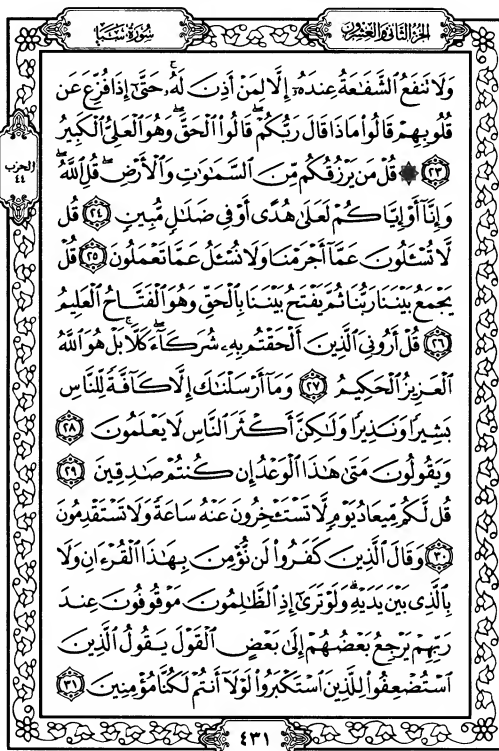 الجزء الثاني والعشرون
سورة سبأ
وَلَا تَنفَعُ ٱلشَّفَٰعَةُ عِندَهُۥٓ إِلَّا لِمَنْ أَذِنَ لَهُۥ حَتَّىٰٓ إِذَا فُزِّعَ عَن
قُلُوبِهِمْ قَالُوا۟ مَاذَا قَالَ رَبُّكُمْ ۖ قَالُوا۟ ٱلْحَقَّ ۖ وَهُوَ ٱلْعَلِىُّ ٱلْكَبِيرُ
الحزب
٤٤
٢٣ ۞ قُلْ مَن يَرْزُقُكُم مِّنَ ٱلسَّمَٰوَٰتِ وَٱلْأَرْضِ ۖ قُلِ ٱللَّهُ ۖ
وَإِنَّآ أَوْ إِيَّاكُمْ لَعَلَىٰ هُدًى أَوْ فِى ضَلَٰلٍ مُّبِينٍ ٢٤ قُل
لَّا تُسْـَٔلُونَ عَمَّآ أَجْرَمْنَا وَلَا نُسْـَٔلُ عَمَّا تَعْمَلُونَ ٢٥ قُلْ
يَجْمَعُ بَيْنَنَا رَبُّنَا ثُمَّ يَفْتَحُ بَيْنَنَا بِٱلْحَقِّ وَهُوَ ٱلْفَتَّاحُ ٱلْعَلِيمُ
٢٦ قُلْ أَرُونِىَ ٱلَّذِينَ أَلْحَقْتُم بِهِۦ شُرَكَآءَ ۖ كَلَّا ۚ بَلْ هُوَ ٱللَّهُ
ٱلْعَزِيزُ ٱلْحَكِيمُ ٢٧ وَمَآ أَرْسَلْنَٰكَ إِلَّا كَآفَّةً لِّلنَّاسِ
بَشِيرًا وَنَذِيرًا وَلَٰكِنَّ أَكْثَرَ ٱلنَّاسِ لَا يَعْلَمُونَ ٢٨
وَيَقُولُونَ مَتَىٰ هَٰذَا ٱلْوَعْدُ إِن كُنتُمْ صَٰدِقِينَ ٢٩
قُل لَّكُم مِّيعَادُ يَوْمٍ لَّا تَسْتَـْٔخِرُونَ عَنْهُ سَاعَةً وَلَا تَسْتَقْدِمُونَ
٣٠ وَقَالَ ٱلَّذِينَ كَفَرُوا۟ لَن نُّؤْمِنَ بِهَٰذَا ٱلْقُرْءَانِ وَلَا
بِٱلَّذِى بَيْنَ يَدَيْهِ ۗ وَلَوْ تَرَىٰٓ إِذِ ٱلظَّٰلِمُونَ مَوْقُوفُونَ عِندَ
رَبِّهِمْ يَرْجِعُ بَعْضُهُمْ إِلَىٰ بَعْضٍ ٱلْقَوْلَ يَقُولُ ٱلَّذِينَ
ٱسْتُضْعِفُوا۟ لِلَّذِينَ ٱسْتَكْبَرُوا۟ لَوْلَآ أَنتُمْ لَكُنَّا مُؤْمِنِينَ ٣١
٤٣١